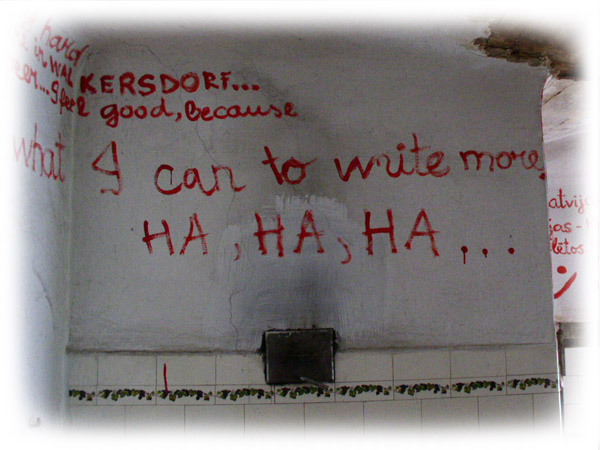 hard
in WALKERSDORF...
I feel good, because
what I can to write more
HA, HA, HA...
atvija
jas -
lētos